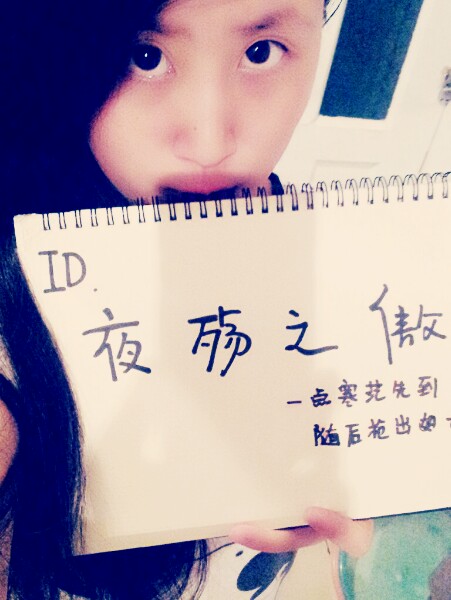 ID.
夜殇之傲
一点寒芒先到
随后枪出如